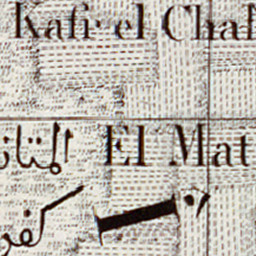 Kafr el Cha
المتان El Mat
كفر